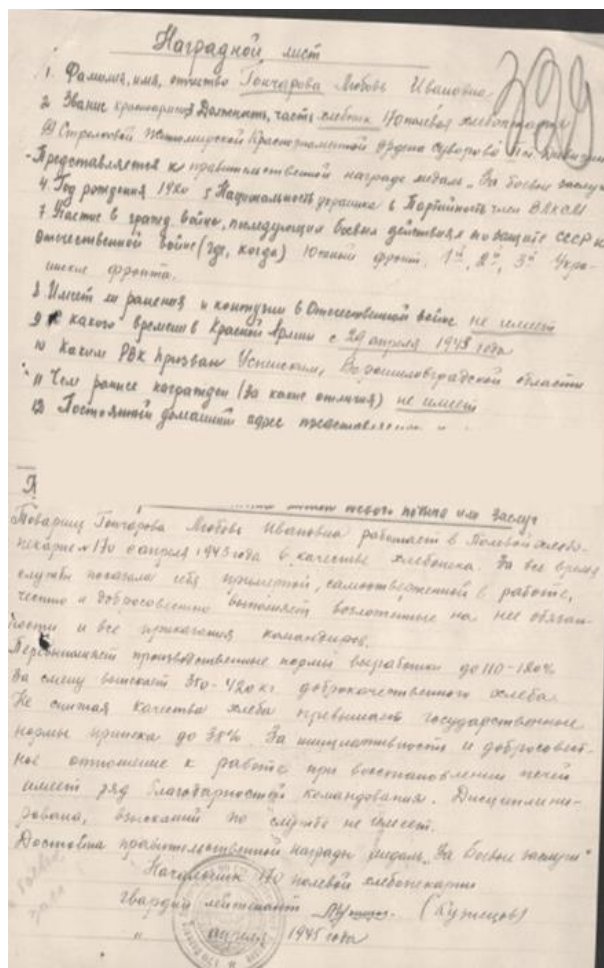 Наградной лист
329
1. Фамилия, имя, отчество Гончарова Любовь Ивановна
2. Звание красноармеец Должность, часть хлебопек 170 полевая хлебопекарня
Стрелковой Житомирской Краснознаменной ордена Суворова
Представляется к правительственной награде медаль „За боевые заслуги
4. Год рождения 1920 5 Национальность украинка 6 Партийность член ВЛКСМ
7 Участие в гражд. войне, последующих боевых действиях по защите СССР и
Отечественной войне (где, когда) Южный фронт, 1й, 2й, 3й Укра-
инские фронта.
8 Имеет ли ранения и контузии в Отечественной войне не имеет
9 С какого времени в Красной Армии с 29 апреля 1943 года
10 Каким РВК призван Успенским, Ворошиловградской области
11 Чем ранее награжден (за какие отличия) не имеет
12 Постоянный домашний адрес
подвига или заслуг
Товарищ Гончарова Любовь Ивановна работает в Полевой хлебо-
пекарне N 170 с апреля 1943 года в качестве хлебопека. За все время
службы показала себя примерной, самоотверженной в работе,
честно и добросовестно выполняет возложенные на нее обязан-
ности и все приказания командиров.
Перевыполняет производственные нормы выработки до 110-120%
За смену выпекает 350-420 кг доброкачественного хлеба
Не снижая качества хлеба превышает государственные
нормы припека до 38%. За инициативность и добросовест-
ное отношение к работе при восстановлении печей
имеет ряд благодарностей командования. Дисциплини-
рована, взысканий по службе не имеет.
Достойна правительственной награды медаль „За боевые заслуги"
Начальник 170 полевой хлебопекарни
гвардии лейтенант (Кузнецов)
" апреля 1945 года